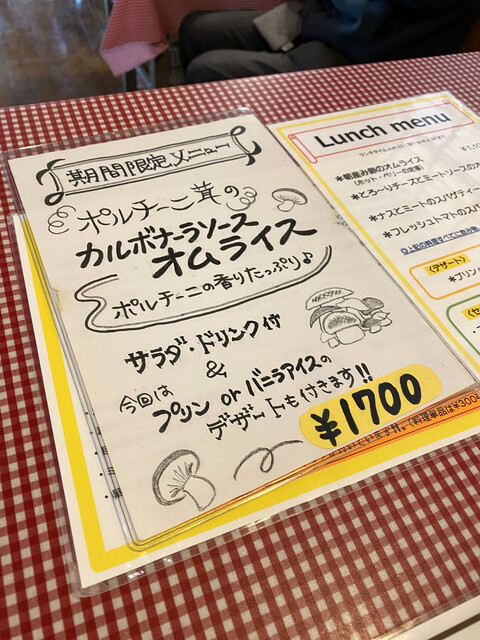 期間限定メニュー
ポルチーニ茸の
カルボナーラソース
オムライス
ポルチーニの香りたっぷり♪
サラダ・ドリンク付
&
今回は
プリン or バニラアイスの
デザートも付きます!!
¥1700
Lunch menu
*朝産み卵のオムライス
(ホット・ペリーの定番)
*とろ~りチーズとミートソースのオ
*ナスとミートのスパゲティー
*フレッシュトマトのスパ
〈デザート〉
*プリン